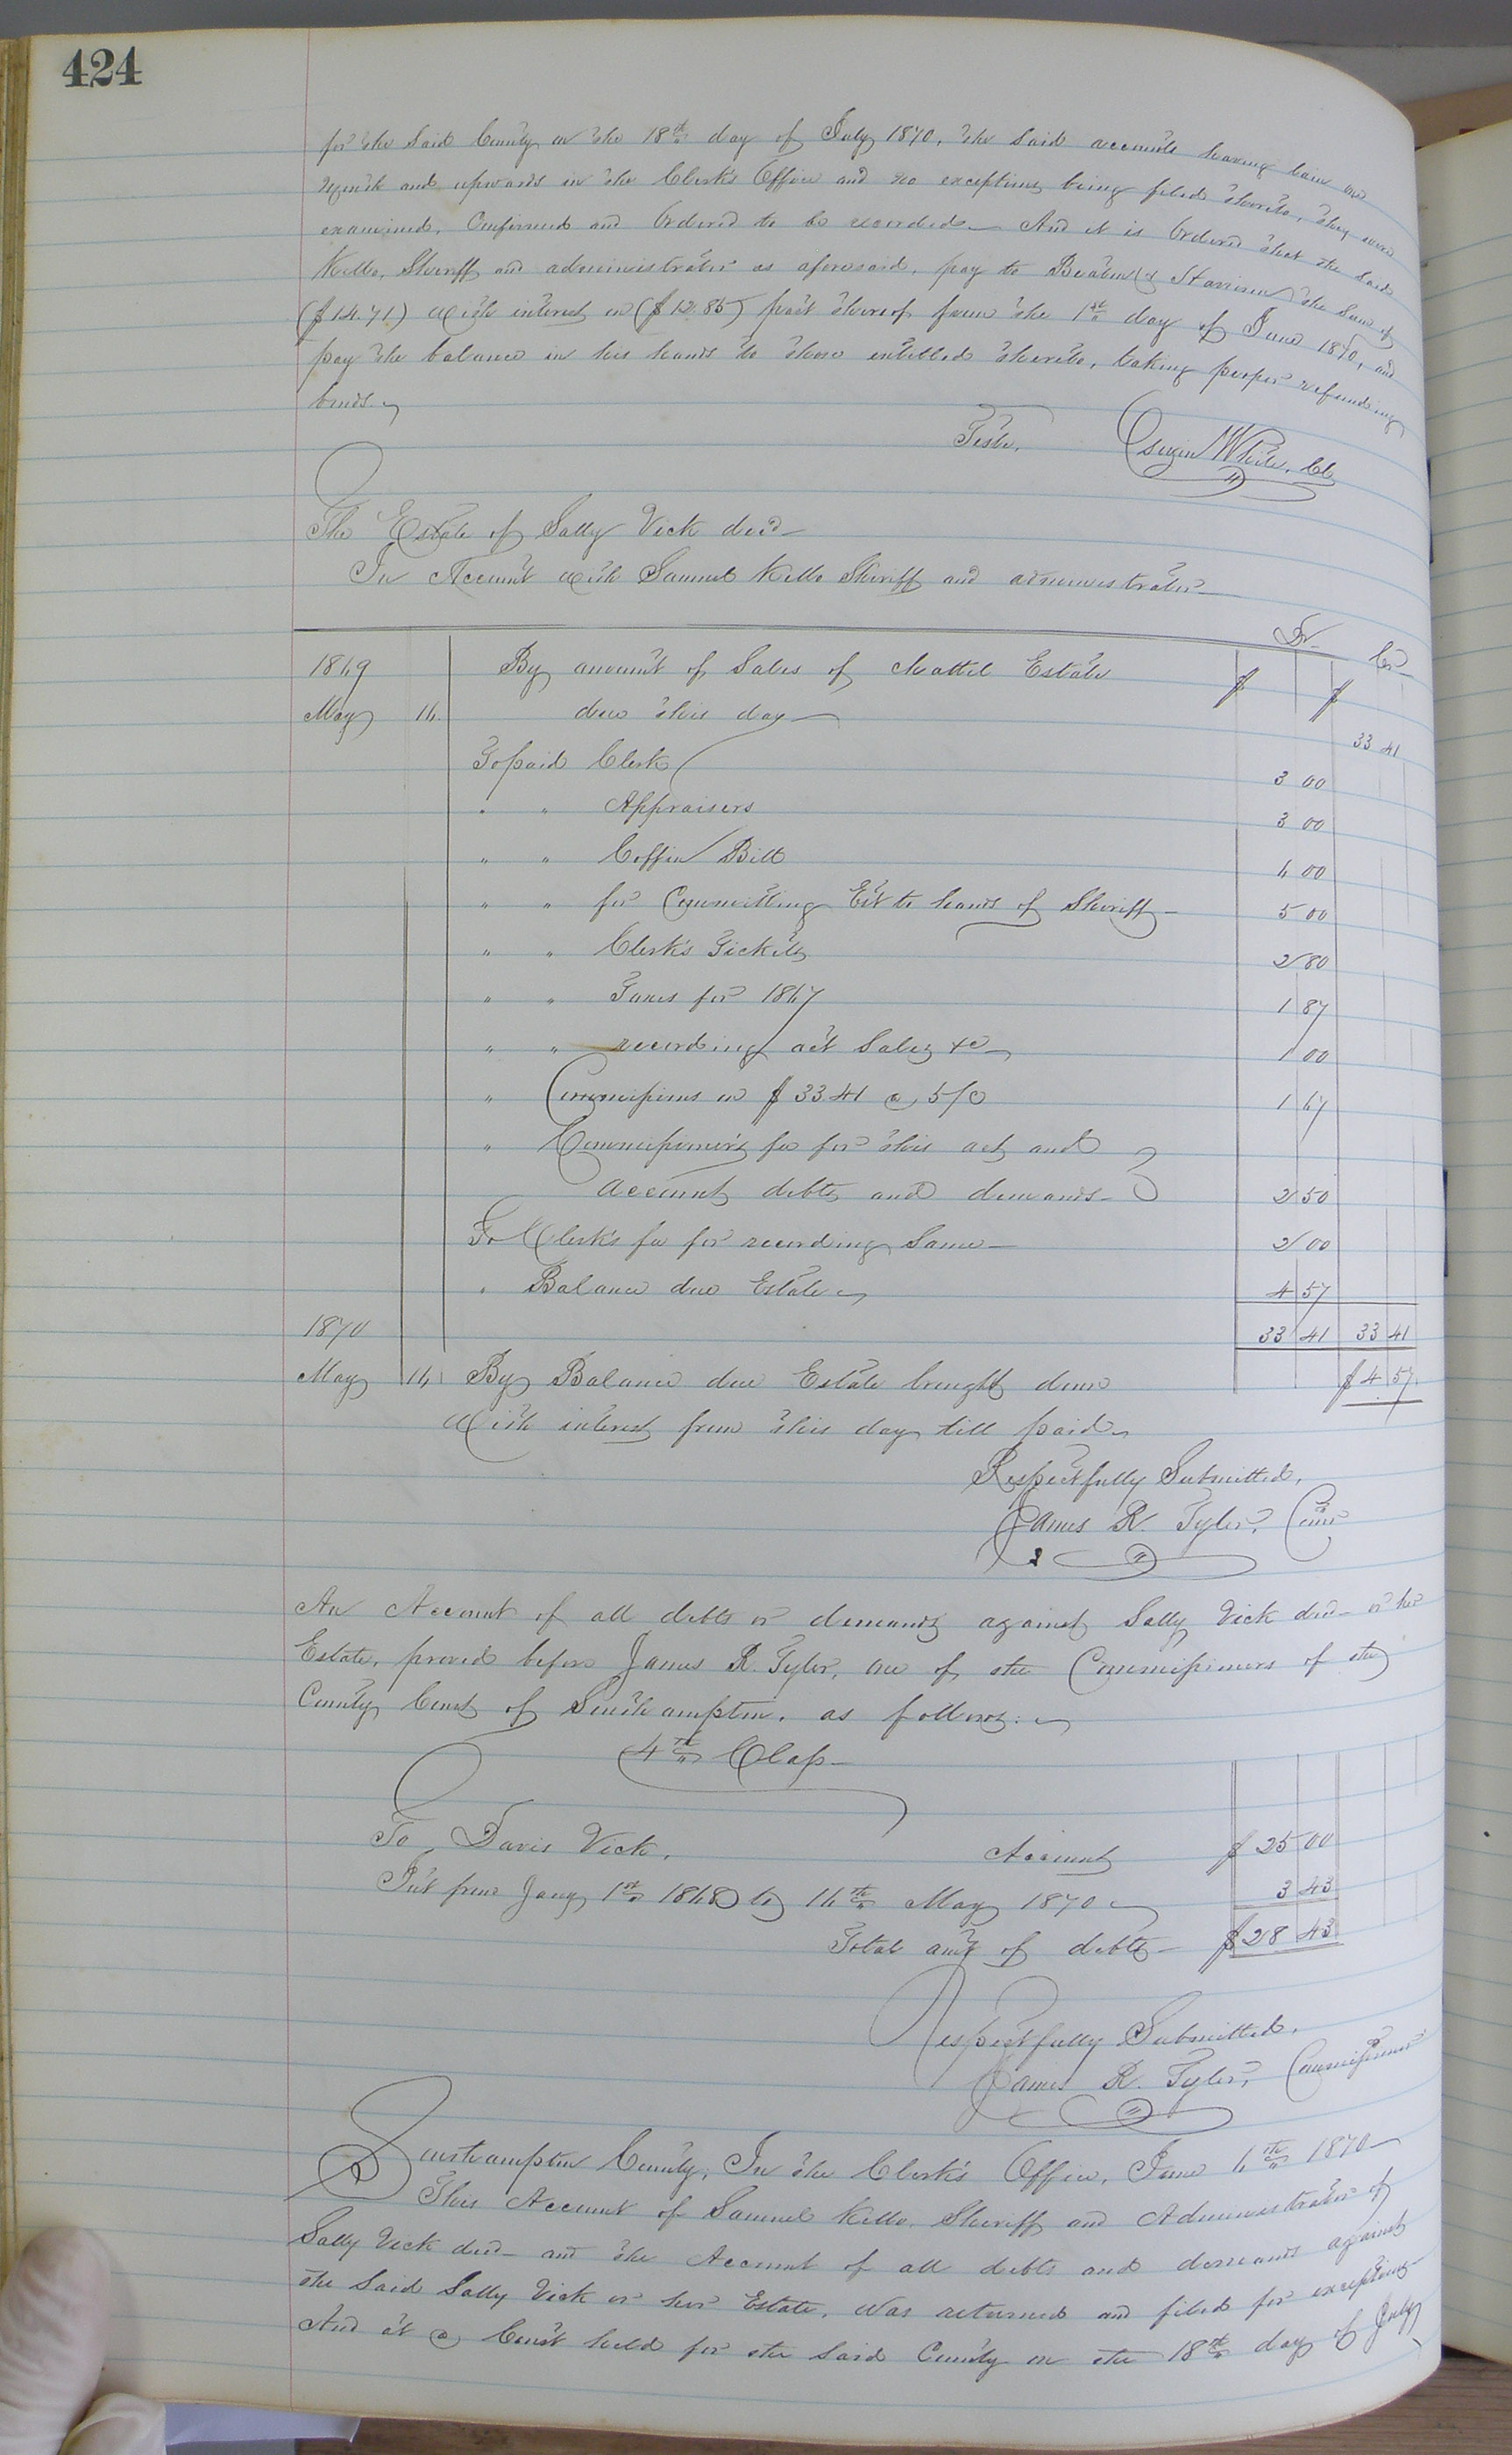 424
for the said County on the 18th day of July 1870, the said accounts having lain one
month and upwards in the Clerk's Office and no exceptions being filed thereto, they were
examined, Confirmed and Ordered to be recorded — And it is Ordered that the said
Kello, Sheriff and administrator as aforesaid, pay to & Harrison the sum of
($14.71) with interest on ($12.85) part thereof from the 1st day of June 1870, and
pay the balance in his hands to those entitled thereto, taking proper refunding
bonds.
Teste, White, Clk
The Estate of Sally Vick decd —
In Account with Samuel Kello Sheriff and administrator —
Dr Cr
1869 By amount of Sales of chattel Estate $ $
May 16. due this day — 33 41
To paid Clerk 3 00
" " Appraisers 3 00
" " Coffin Bill 6 00
" " for Committing Est to hands of Sheriff — 5 00
" " Clerk's Tickets 2 80
" " Taxes for 1867 1 87
" " recording act Sales &c — 1 00
" Commissions on $33 41 @ 5/0 1 67
" Commissioner's fee for this act and
account debts and demands — 2 50
To Clerk's fee for recording Same — 2 00
" Balance due Estate — 4 57
1870 33 41 33 41
May 16 By Balance due Estate brought down $4 57
With interest from this day till paid —
Respectfully Submitted,
James R. Tyler, Comr
An Account of all debts or demands against Sally Vick decd — or her
Estate, proved before James R. Tyler, one of the Commissioners of the
County Court of Southampton, as follows: —
4th Class —
To Davis Vick, Account $25 00
Int from Jany 1st 1868 to 16th May 1870 — 3 43
Total amt of debts — $28 43
Respectfully Submitted,
James R. Tyler, Commissioner
Southampton County, In the Clerk's Office, June 6th 1870 —
This Account of Samuel Kello, Sheriff and Administrator of
Sally Vick decd — and the Account of all debts and demands against
the said Sally Vick or her Estate, Was returned and filed for exceptions —
And at a Court held for the said County on the 18th day of July